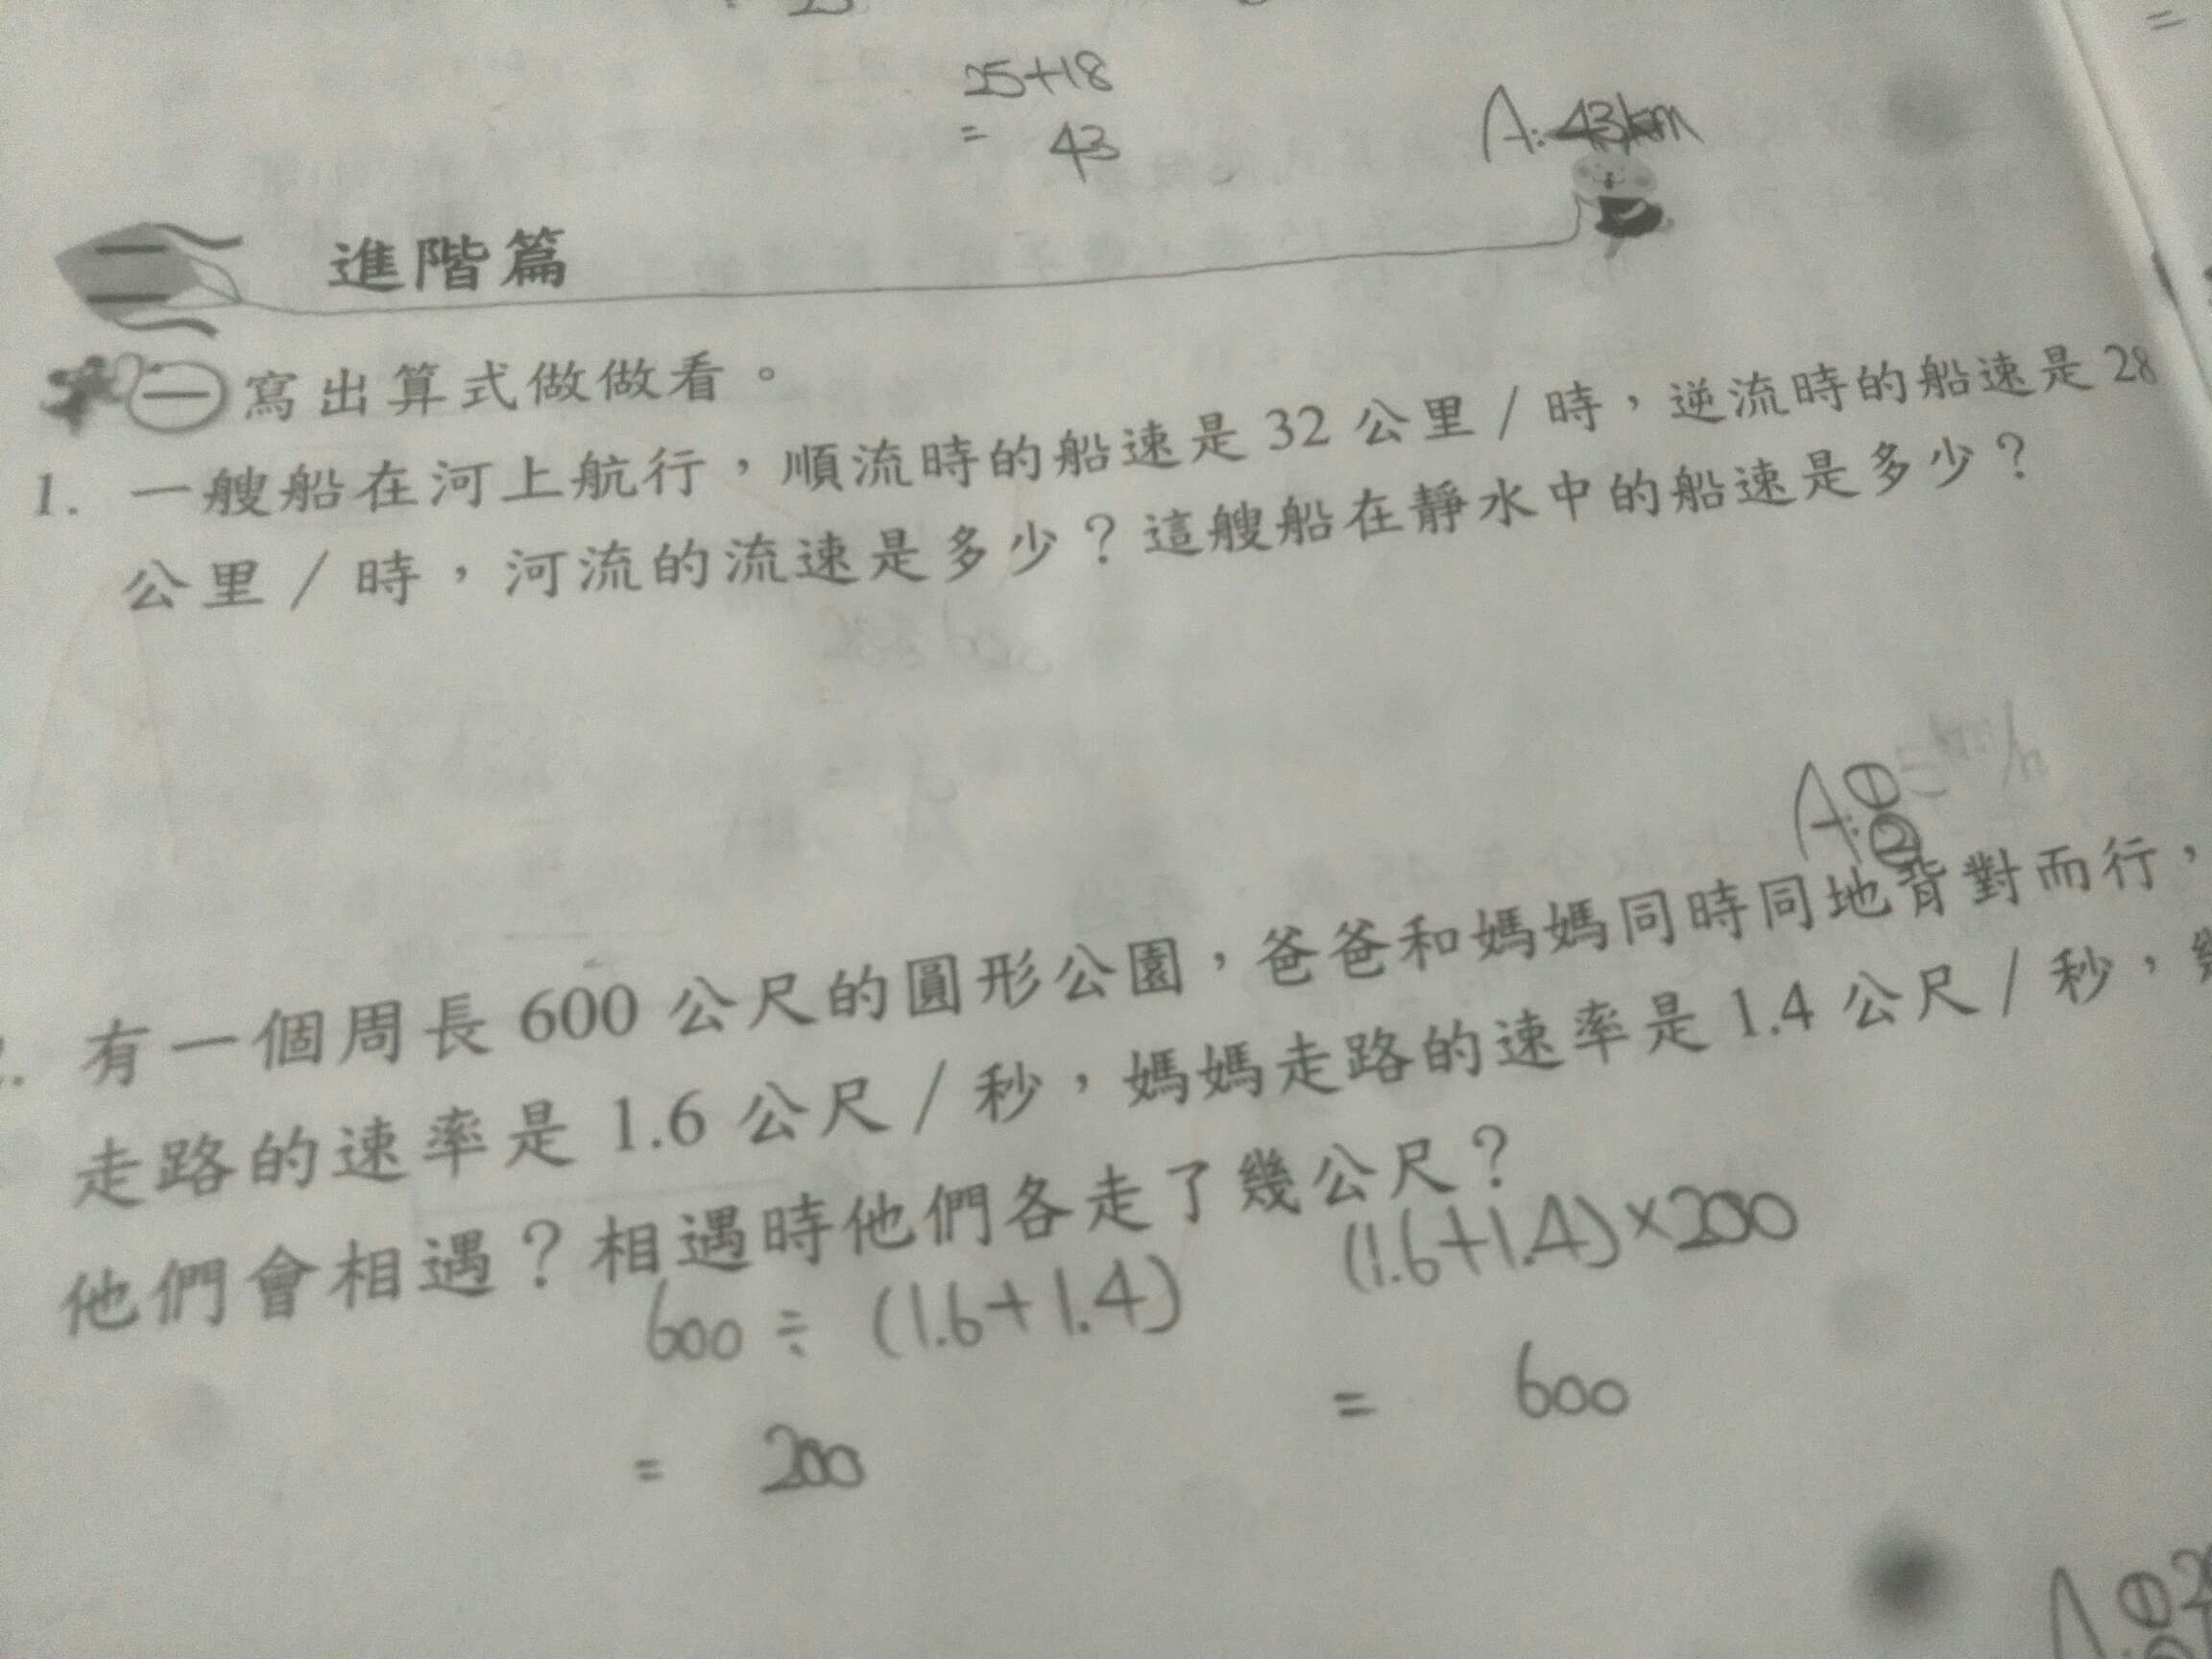 25+18
= 43
A: 43km
進階篇
一 寫出算式做做看。
1. 一艘船在河上航行，順流時的船速是 32 公里/時，逆流時的船速是 28
公里/時，河流的流速是多少？這艘船在靜水中的船速是多少？
A:①
②
有一個周長 600 公尺的圓形公園，爸爸和媽媽同時同地背對而行，
走路的速率是 1.6 公尺/秒，媽媽走路的速率是 1.4 公尺/秒，
他們會相遇？相遇時他們各走了幾公尺？
600 ÷ (1.6+1.4)
= 200
(1.6+1.4)×200
= 600
A:①